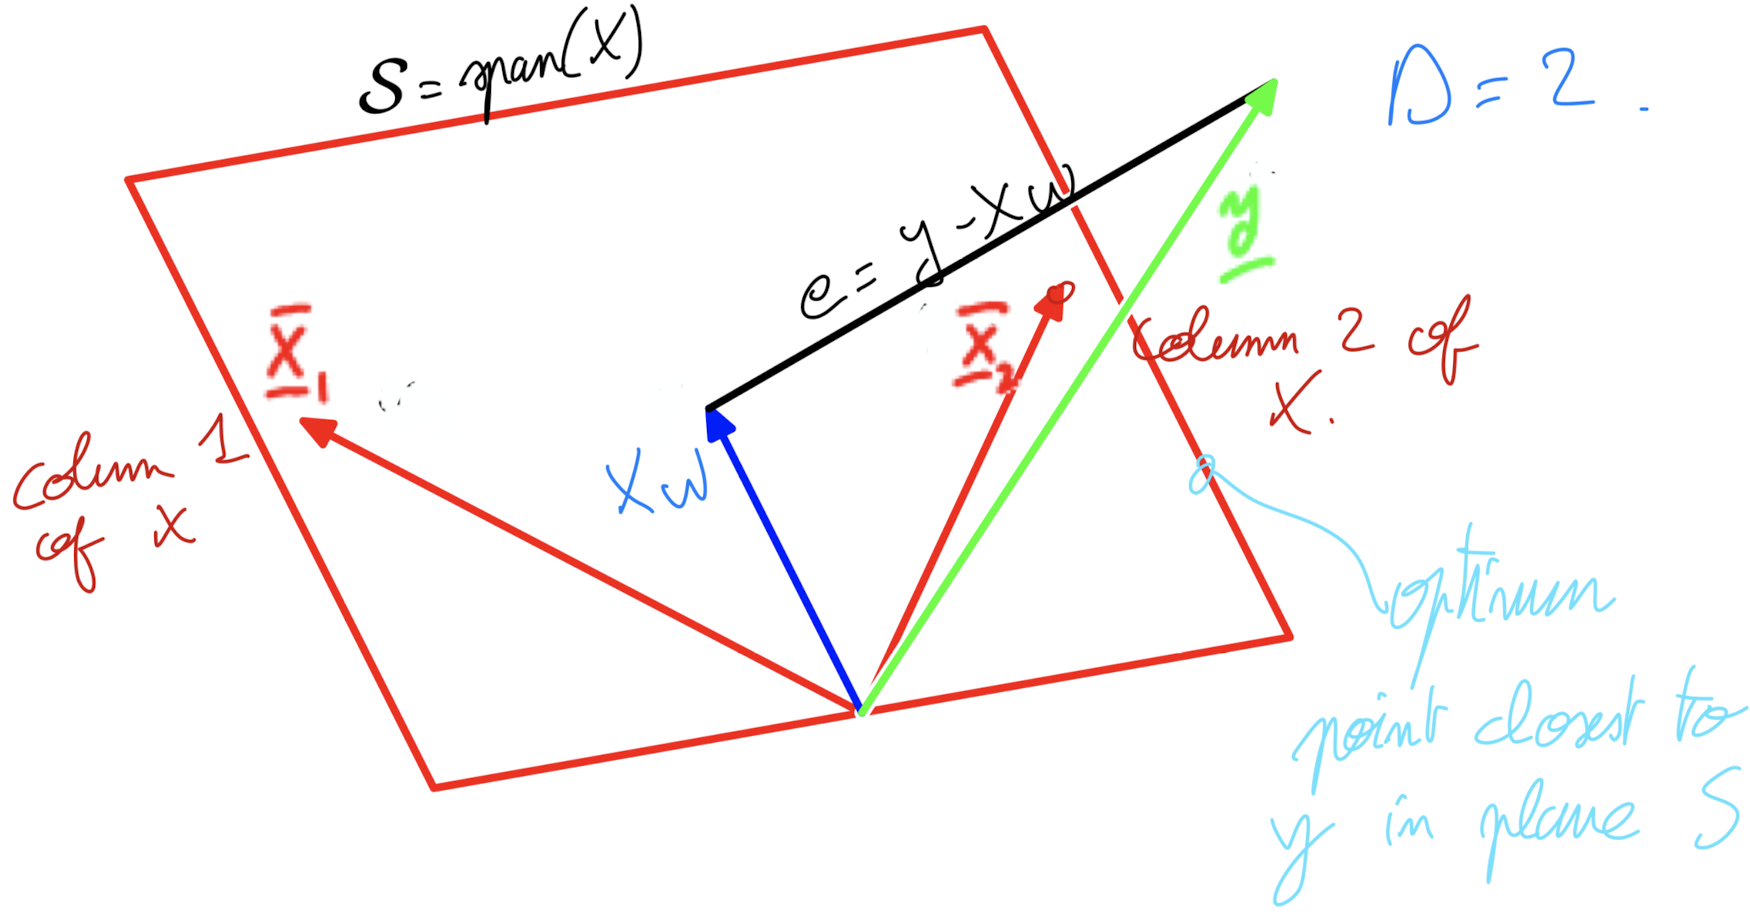 S = span(X)
D = 2 .
e = y - Xw
y
x̄1
x̄2
column 2 of
X.
column 1
of x
Xw
optimum
point closest to
y in plane S